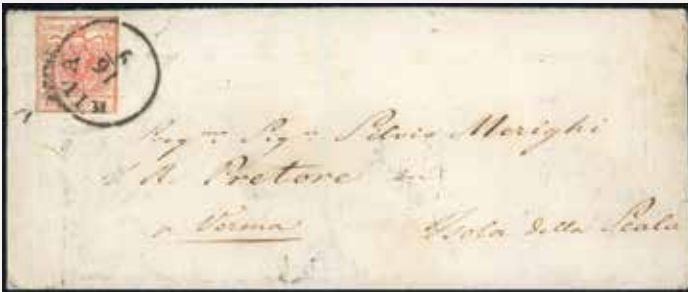 RIVA
16
Sig.r Silvio Merighi
Pretore
a Verona Isola della Scala